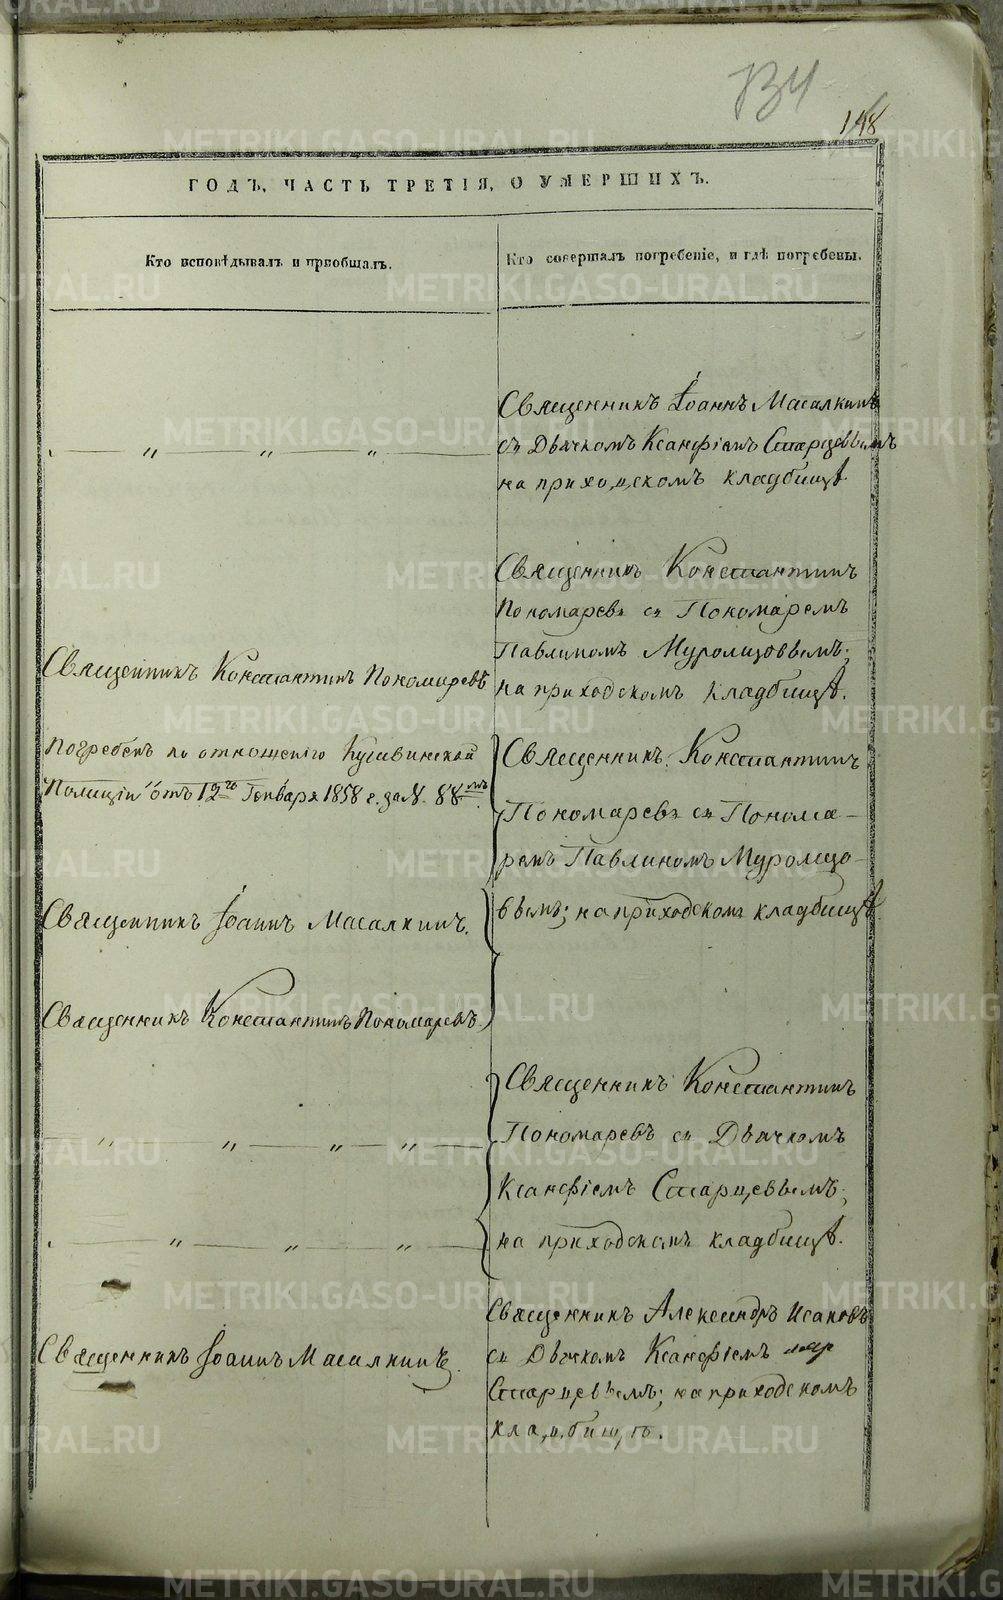 134
148
ГОДЪ, ЧАСТЬ ТРЕТІЯ, О УМЕРШИХЪ.
Кто исповѣдывалъ и пріобщалъ.
Кто совершалъ погребеніе, и гдѣ погребены.
Священникъ Іоаннъ Масалкинъ
съ Дьячкомъ Ксанфіемъ Старцевымъ
на приходскомъ кладбищѣ.
Священникъ Константинъ
Пономаревъ съ Пономаремъ
Павлиномъ Муромцовымъ;
на приходскомъ кладбищѣ.
Священникъ Константинъ Пономаревъ
Погребенъ по отношенію Кушвинской
Полиціи отъ 12го Генваря 1858 г. за №. 88мъ.
Священникъ Константинъ
Пономаревъ съ Понома-
ремъ Павлиномъ Муромцо-
вымъ; на приходскомъ кладбищѣ.
Священникъ Іоаннъ Масалкинъ.
Священникъ Константинъ Пономаревъ.
Священникъ Константинъ
Пономаревъ съ Дьячкомъ
Ксанфіемъ Старцевымъ;
на приходскомъ кладбищѣ.
Священникъ Іоаннъ Масалкинъ.
Священникъ Александръ Исаковъ
съ Дьячкомъ Ксанфіемъ
Старцевымъ; на приходскомъ
кладбищѣ.
METRIKI.GASO-URAL.RU